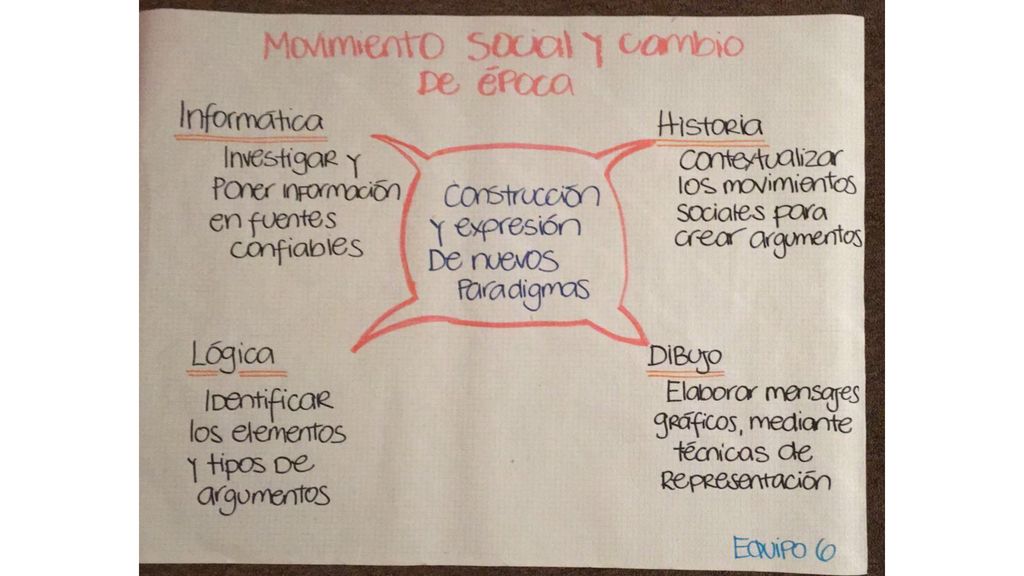 Movimiento Social y cambio
De época
Informática
Investigar y
Poner información
en fuentes
confiables
Historia
contextualizar
los movimientos
sociales para
crear argumentos
Construcción
y expresión
De nuevos
Paradigmas
Lógica
Identificar
los elementos
y tipos De
argumentos
Dibujo
Elaborar mensajes
gráficos, mediante
técnicas de
Representación
Equipo 6